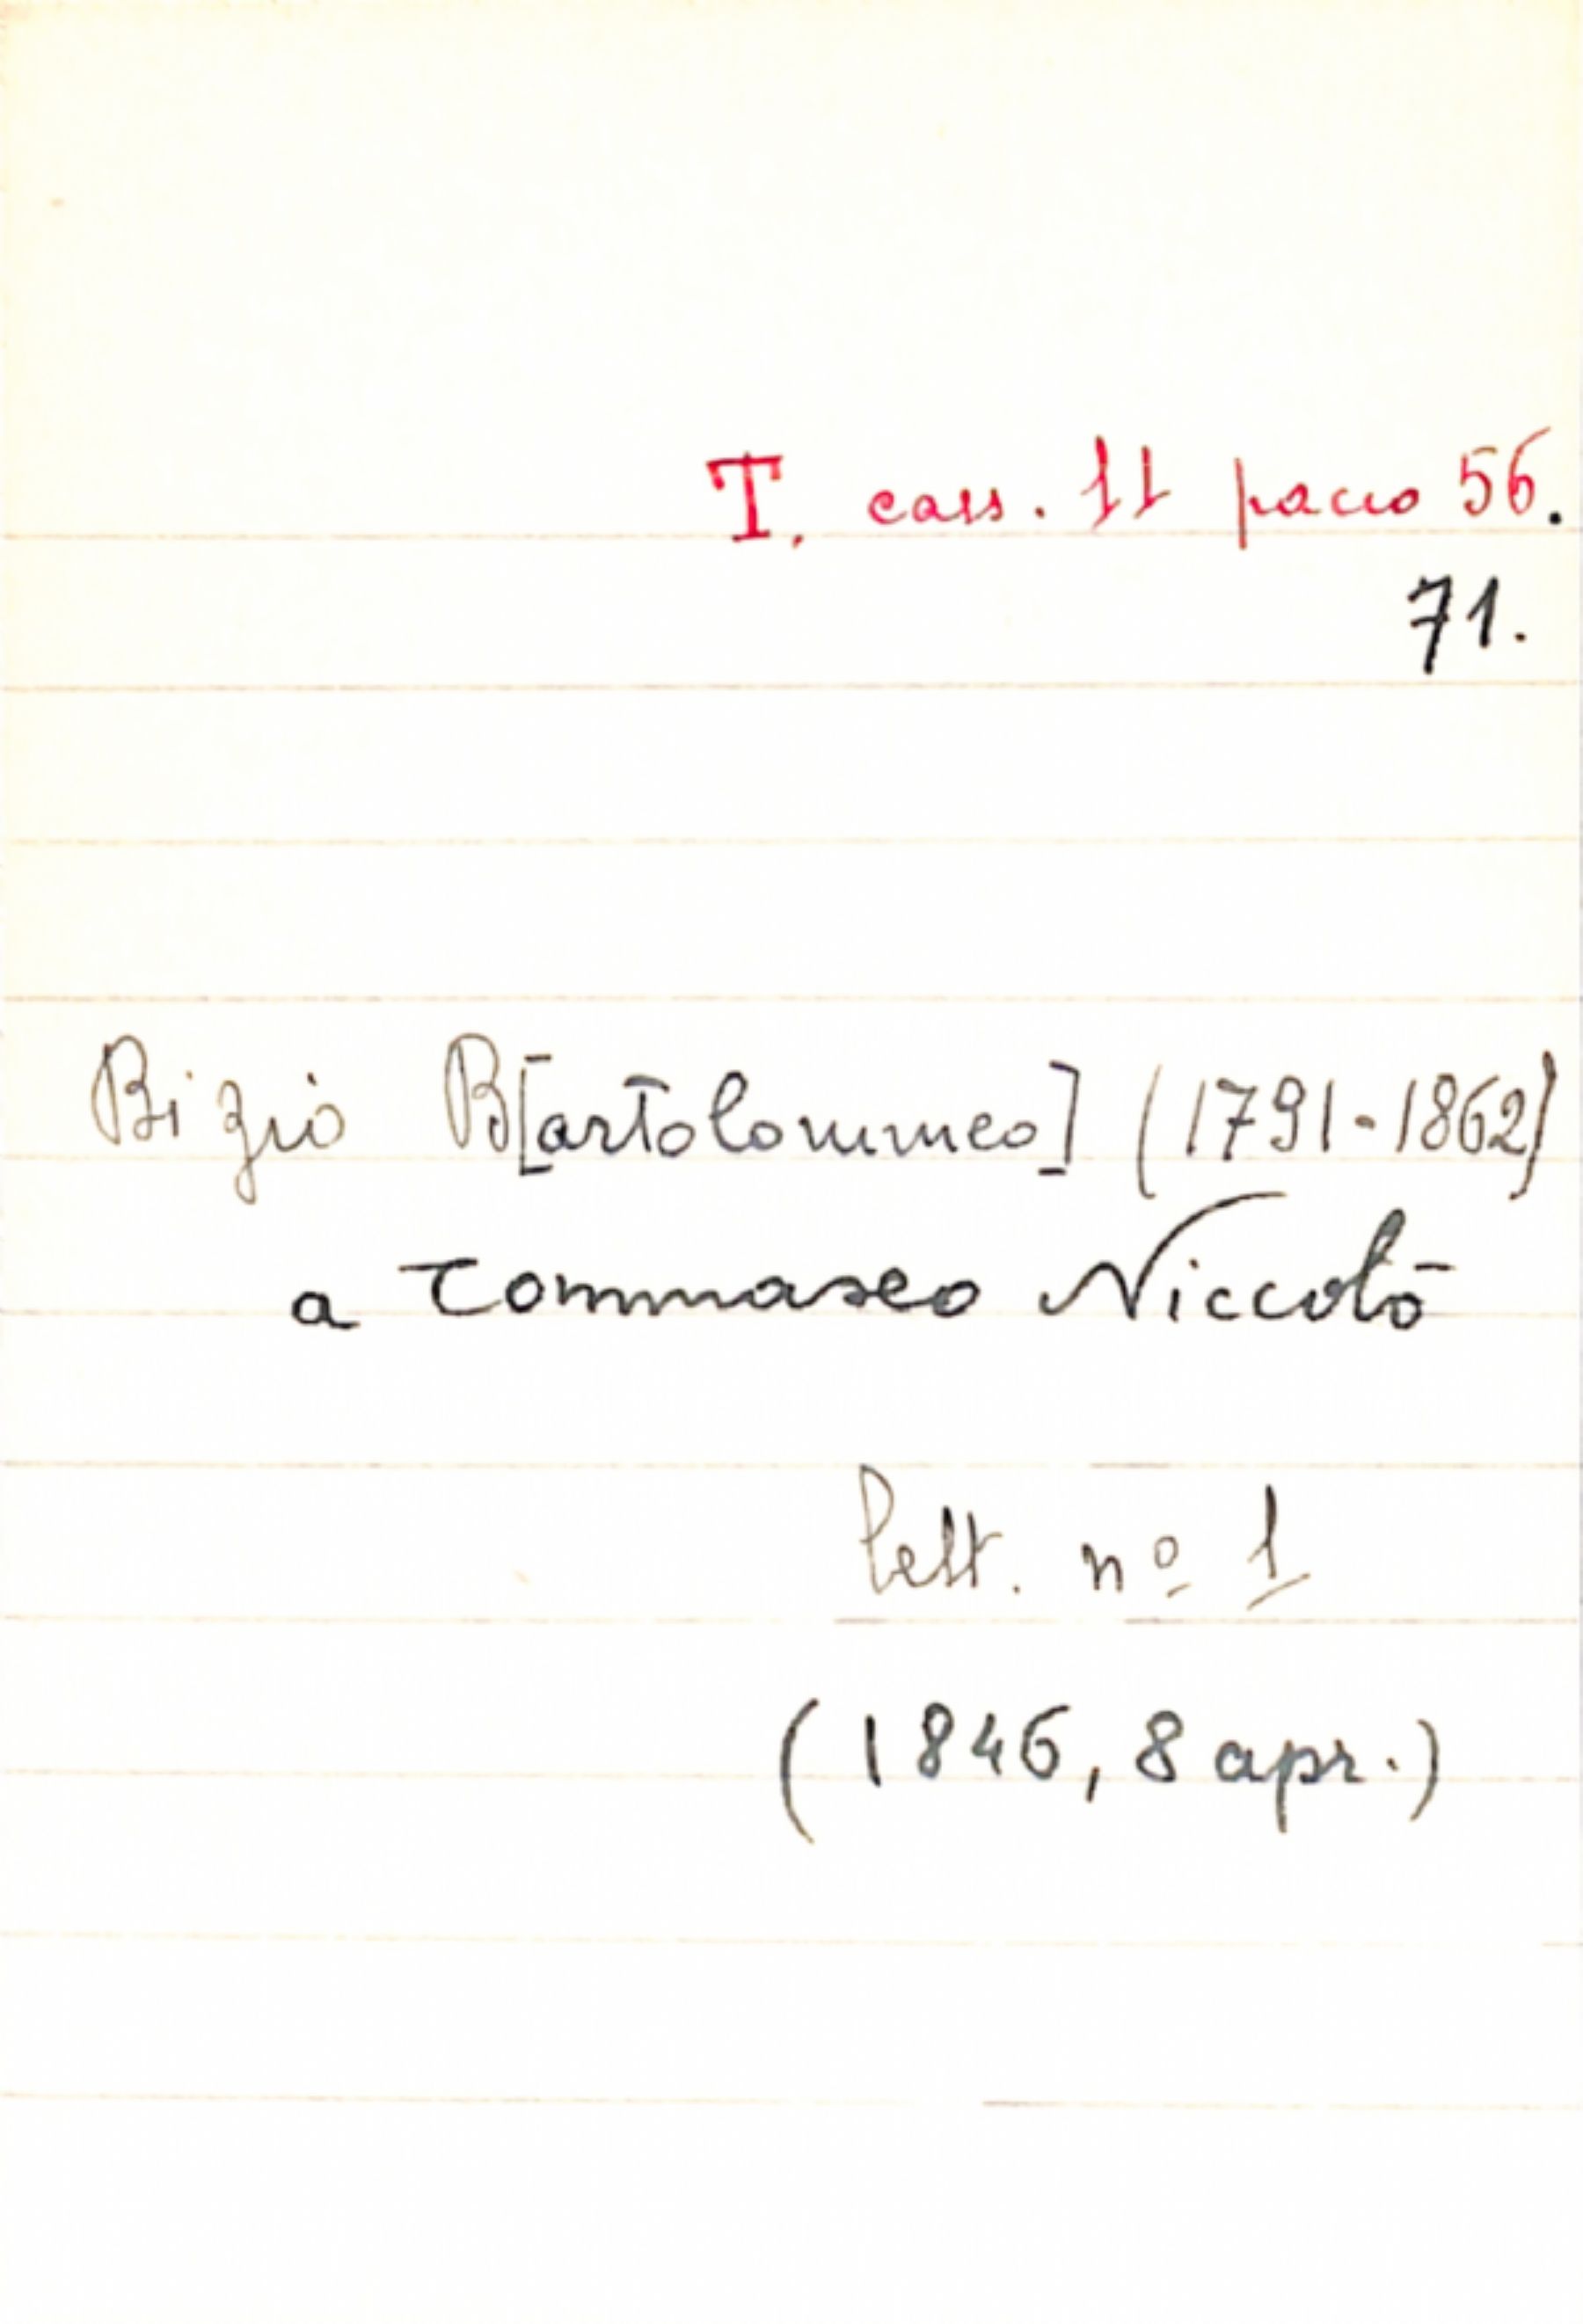 T. cass. 11 pacco 56.
71.
Bizio B[artolommeo] (1791-1862)
a Tommaseo Niccolò
lett. nº 1
(1846, 8 apr.)